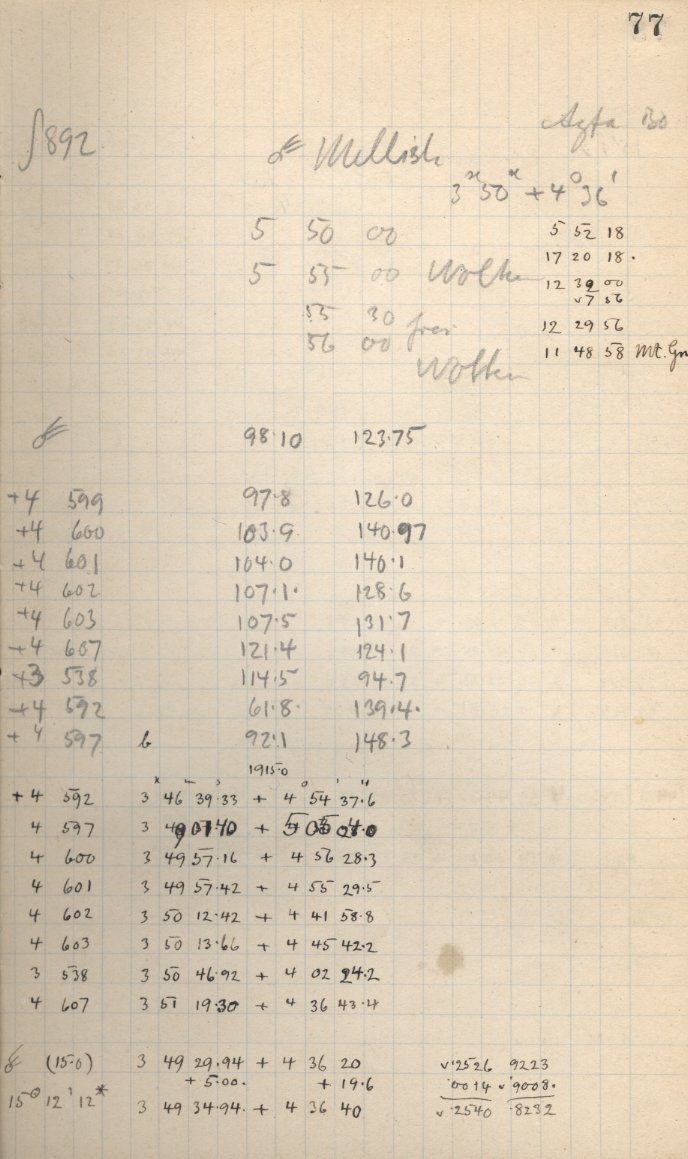 77
∫892 ☄ Mellish Agfa Iso
3ʰ 50ᵐ + 4° 36'
5 50 00
5 55 00 Wolken
55 30 frei
56 00
Wolken
5 52 18
17 20 18.
12 00
√7 56
12 29 56
11 48 58 Mt. Gn
☄ 98.10 123.75
+4 599 97.8 126.0
+4 600 103.9 140.97
+4 601 104.0 140.1
+4 602 107.1. 128.6
+4 603 107.5 131.7
+4 607 121.4 124.1
+3 538 114.5 94.7
+4 592 61.8. 139.4.
+4 597 b 92.1 148.3
1915.0
h m s ° ' "
+4 592 3 46 39.33 + 4 54 37.6
4 597 3 +
4 600 3 49 57.16 + 4 56 28.3
4 601 3 49 57.42 + 4 55 29.5
4 602 3 50 12.42 + 4 41 58.8
4 603 3 50 13.66 + 4 45 42.2
3 538 3 50 46.92 + 4 02 24.2
4 607 3 51 19.30 + 4 36 43.4
☄ (15.0) 3 49 29.94 + 4 36 20
+ 5.00. + 19.6
15° 12' 12* 3 49 34.94. + 4 36 40
√.2526 9223
.0014 √9008.
√.2540 .8232